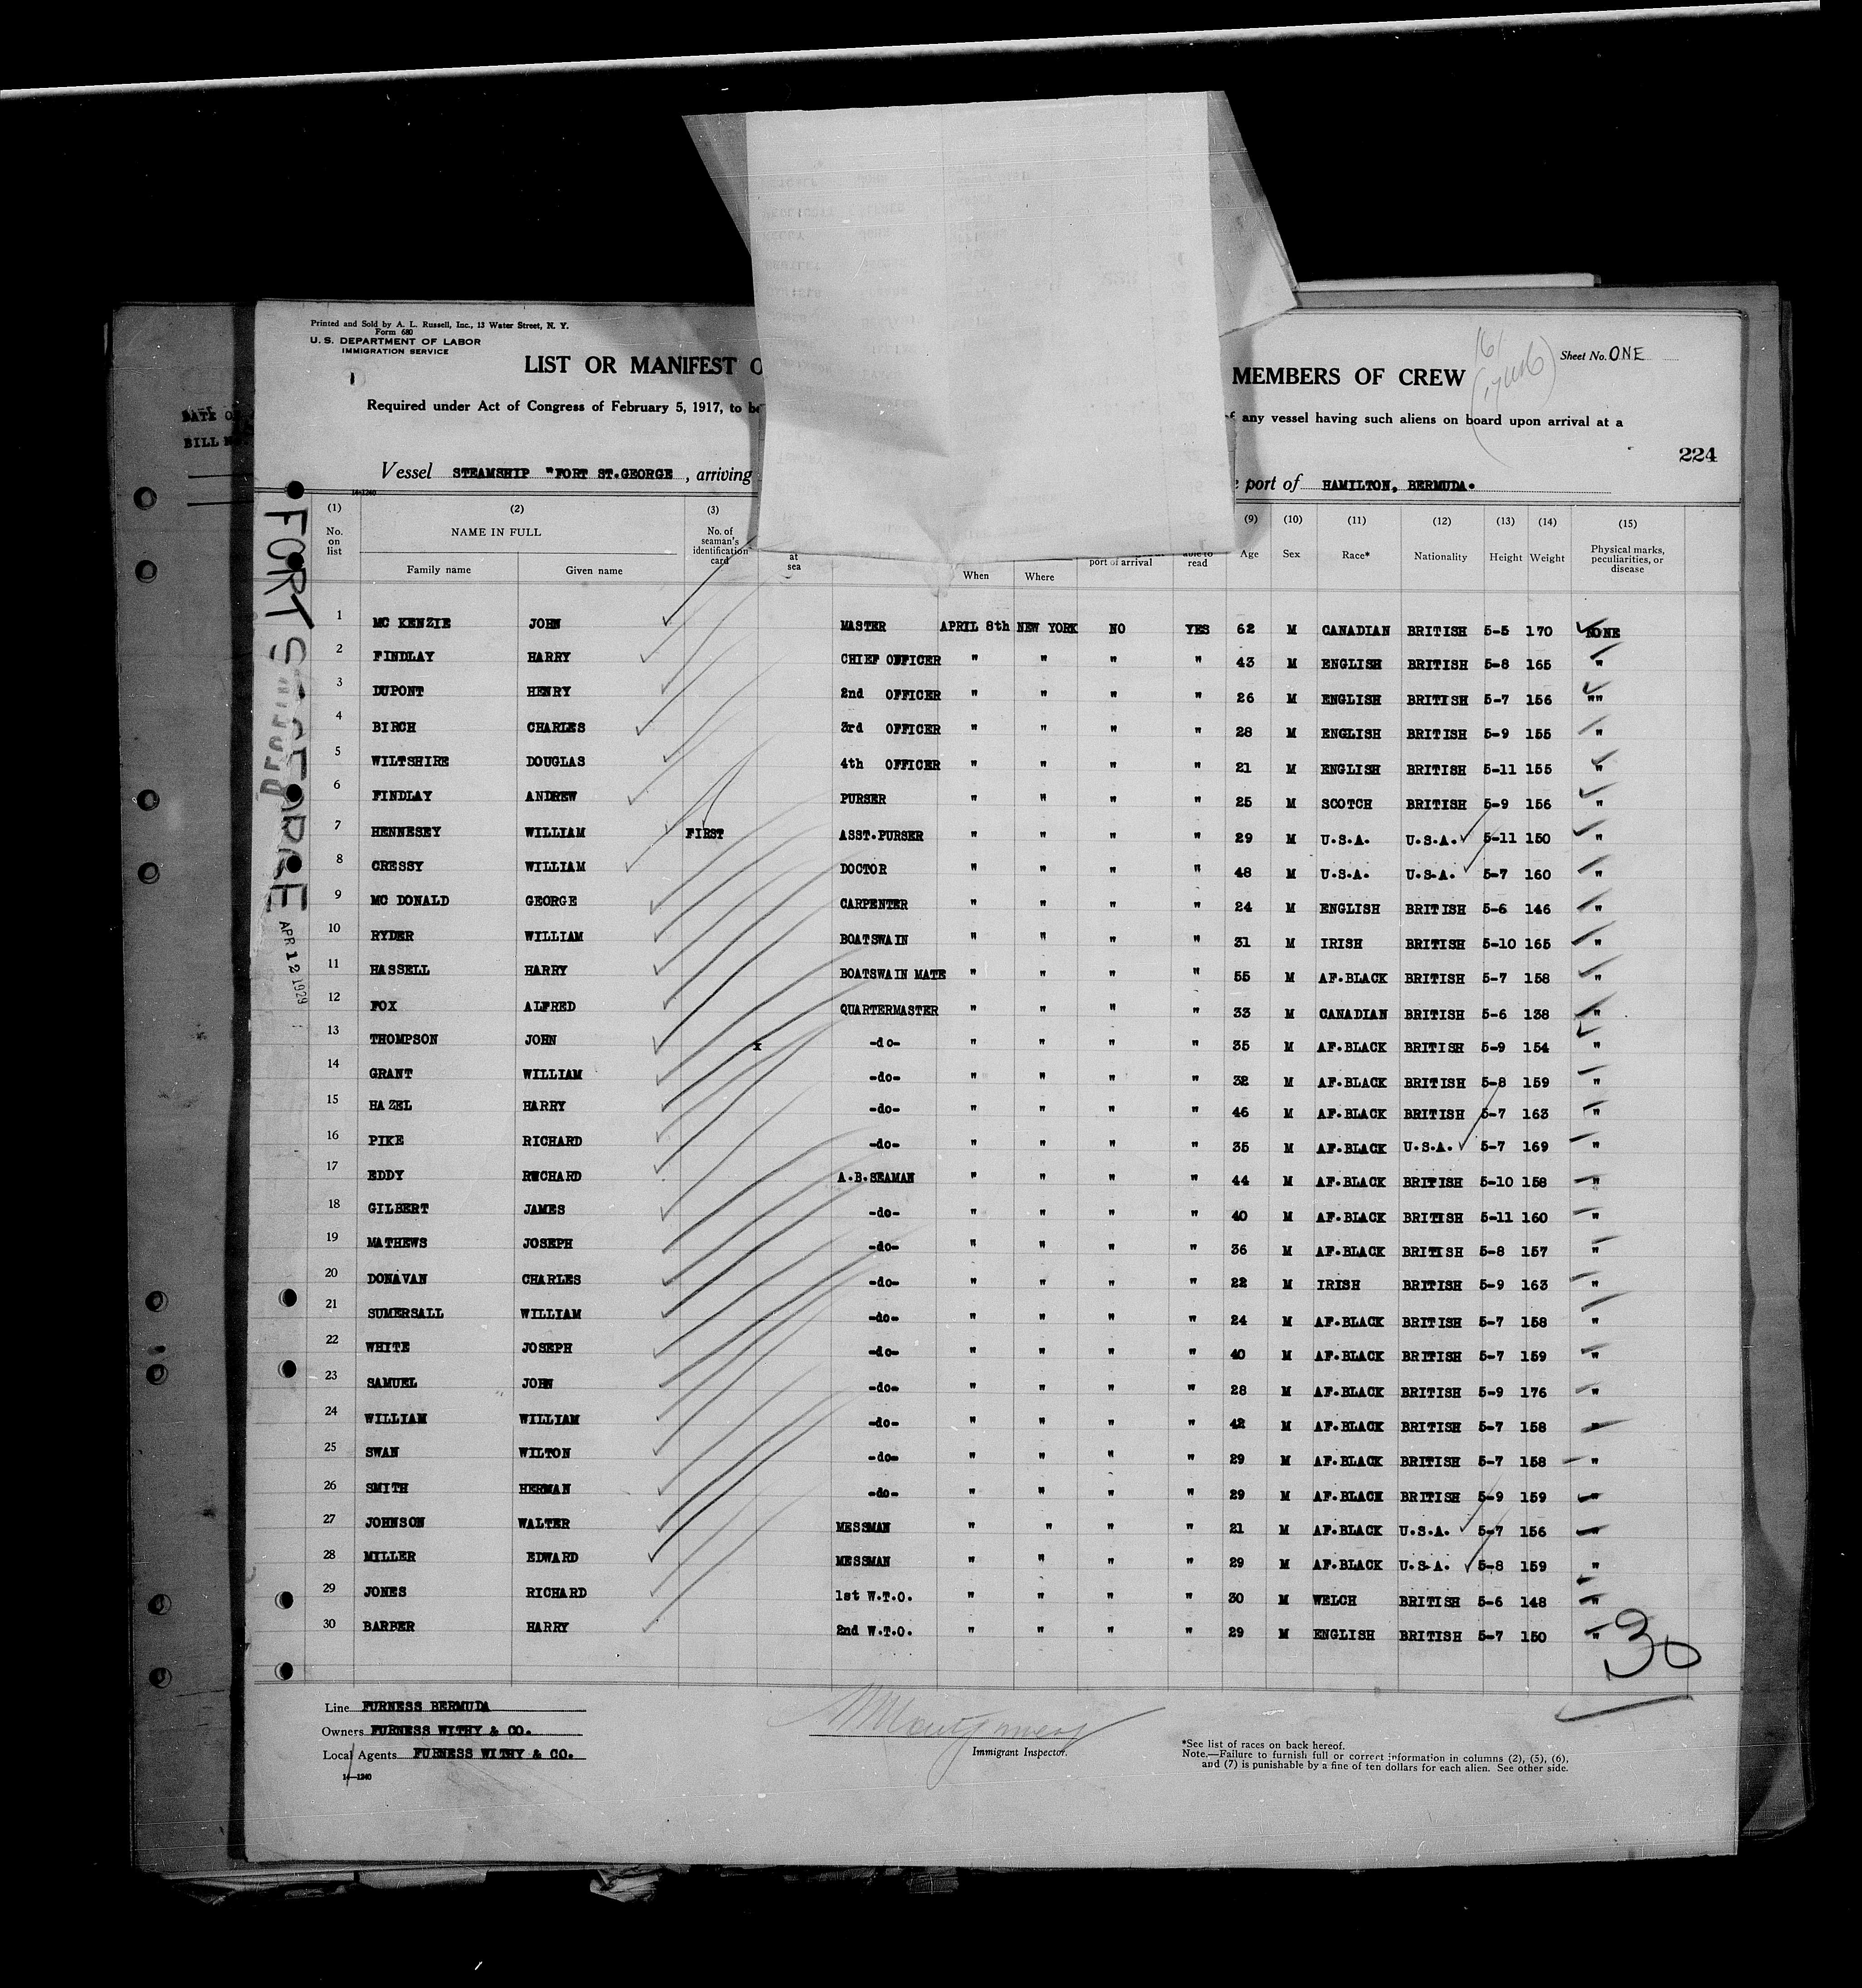 Printed and Sold by A. L. Russell, Inc., 13 Water Street, N. Y.
Form 680
U. S. DEPARTMENT OF LABOR
IMMIGRATION SERVICE
Sheet No. ONE
LIST OR MANIFEST O MEMBERS OF CREW
Required under Act of Congress of February 5, 1917, to be any vessel having such aliens on board upon arrival at a
224
DATE O
BILL
Vessel STEAMSHIP "FORT ST.GEORGE , arriving port of HAMILTON, BERMUDA.
14-1240
FORT ST GEORGE
APR 12 1929
(1) (2) (3) (9) (10) (11) (12) (13) (14) (15)
No. on list NAME IN FULL No. of seaman's identification card at sea port of arrival able to read Age Sex Race* Nationality Height Weight Physical marks, peculiarities, or disease
Family name Given name When Where
1 MC KENZIE JOHN MASTER APRIL 8th NEW YORK NO YES 62 M CANADIAN BRITISH 5-5 170 NONE
2 FINDLAY HARRY CHIEF OFFICER " " " " 43 M ENGLISH BRITISH 5-8 165 "
3 DUPONT HENRY 2nd OFFICER " " " " 26 M ENGLISH BRITISH 5-7 156 ""
4 BIRCH CHARLES 3rd OFFICER " " " " 28 M ENGLISH BRITISH 5-9 155 "
5 WILTSHIRE DOUGLAS 4th OFFICER " " " " 21 M ENGLISH BRITISH 5-11 155 "
6 FINDLAY ANDREW PURSER " " " " 25 M SCOTCH BRITISH 5-9 156 "
7 HENNESEY WILLIAM FIRST ASST.PURSER " " " " 29 M U.S.A. U.S.A. 5-11 150 "
8 CRESSY WILLIAM DOCTOR " " " " 48 M U.S.A. U.S.A. 5-7 160 "
9 MC DONALD GEORGE CARPENTER " " " " 24 M ENGLISH BRITISH 5-6 146 "
10 RYDER WILLIAM BOATSWAIN " " " " 31 M IRISH BRITISH 5-10 165 "
11 HASSELL HARRY BOATSWAIN MATE " " " " 55 M AF.BLACK BRITISH 5-7 158 "
12 FOX ALFRED QUARTERMASTER " " " " 33 M CANADIAN BRITISH 5-6 138 "
13 THOMPSON JOHN x -do- " " " " 35 M AF.BLACK BRITISH 5-9 154 "
14 GRANT WILLIAM -do- " " " " 32 M AF.BLACK BRITISH 5-8 159 "
15 HAZEL HARRY -do- " " " " 46 M AF.BLACK BRITISH 5-7 163 "
16 PIKE RICHARD -do- " " " " 35 M AF.BLACK U.S.A. 5-7 169 "
17 EDDY RWCHARD A.B.SEAMAN " " " " 44 M AF.BLACK BRITISH 5-10 158 "
18 GILBERT JAMES -do- " " " " 40 M AF.BLACK BRITISH 5-11 160 "
19 MATHEWS JOSEPH -do- " " " " 36 M AF.BLACK BRITISH 5-8 157 "
20 DONAVAN CHARLES -do- " " " " 22 M IRISH BRITISH 5-9 163 "
21 SUMERSALL WILLIAM -do- " " " " 24 M AF.BLACK BRITISH 5-7 158 "
22 WHITE JOSEPH -do- " " " " 40 M AF.BLACK BRITISH 5-7 159 "
23 SAMUEL JOHN -do- " " " " 28 M AF.BLACK BRITISH 5-9 176 "
24 WILLIAM WILLIAM -do- " " " " 42 M AF.BLACK BRITISH 5-7 158 "
25 SWAN WILTON -do- " " " " 29 M AF.BLACK BRITISH 5-7 158 "
26 SMITH HERMAN -do- " " " " 29 M AF.BLACK BRITISH 5-9 159 "
27 JOHNSON WALTER MESSMAN " " " " 21 M AF.BLACK U.S.A. 5-7 156 "
28 MILLER EDWARD MESSMAN " " " " 29 M AF.BLACK U.S.A. 5-8 159 "
29 JONES RICHARD 1st W.T.O. " " " " 30 M WELCH BRITISH 5-6 148 "
30 BARBER HARRY 2nd W.T.O. " " " " 29 M ENGLISH BRITISH 5-7 150 "
30
Line FURNESS BERMUDA
Owners FURNESS WITHY & CO.
Local Agents FURNESS WITHY & CO.
14-1240
Montgomery
Immigrant Inspector.
*See list of races on back hereof.
Note.—Failure to furnish full or correct information in columns (2), (5), (6),
and (7) is punishable by a fine of ten dollars for each alien. See other side.